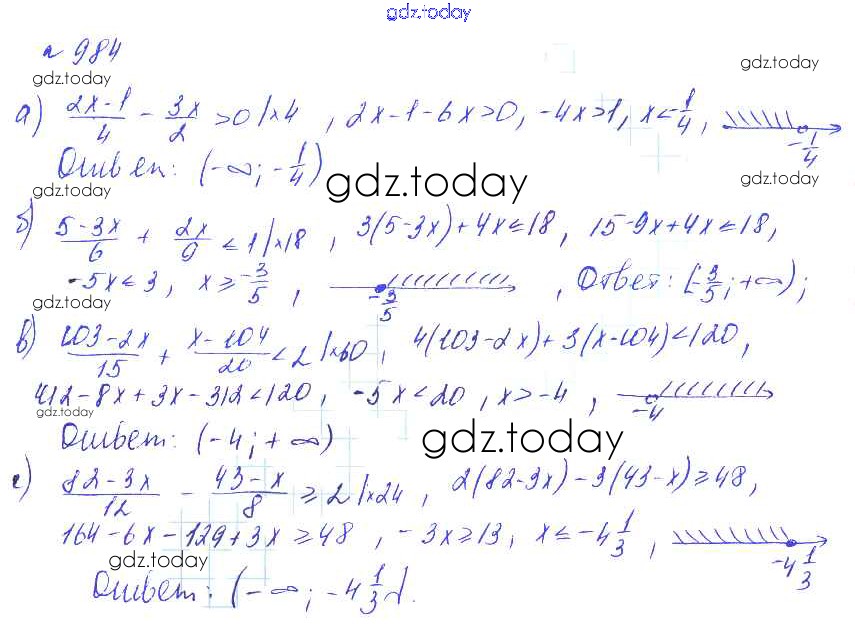 gdz.today
№ 984
gdz.today
gdz.today
а) (2x-1)/4 - 3x/2 > 0 |×4 , 2x-1-6x>0, -4x>1, x<-1/4,
-1/4
Ответ: (-∞; -1/4)
gdz.today
gdz.today
gdz.today
б) (5-3x)/6 + 2x/9 ≤ 1 |×18 , 3(5-3x)+4x≤18, 15-9x+4x≤18,
-5x≤3, x≥-3/5 , -3/5 , Ответ: [-3/5; +∞);
gdz.today
в) (103-2x)/15 + (x-104)/20 < 2 |×60, 4(103-2x)+3(x-104)<120,
412-8x+3x-312<120, -5x<20, x>-4 , -4
gdz.today
Ответ: (-4; +∞)
gdz.today
г) (82-3x)/12 - (43-x)/8 ≥ 2 |×24 , 2(82-3x)-3(43-x)≥48,
164-6x-129+3x≥48 , -3x≥13, x≤-4 1/3 , -4 1/3
gdz.today
gdz.today
Ответ: (-∞; -4 1/3].